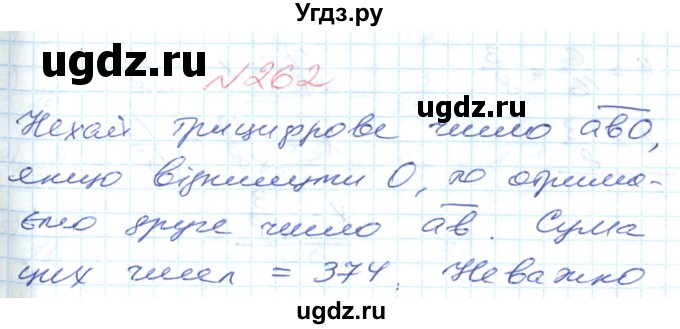 Угдз.ру
ugdz.ru
№262
ugdz.ru
Нехай трицифрове число ав0,
ugdz.ru
якщо відкинути 0, то отрима-
ємо друге число ав. Сума
цих чисел = 374. Неважко
ugdz.ru